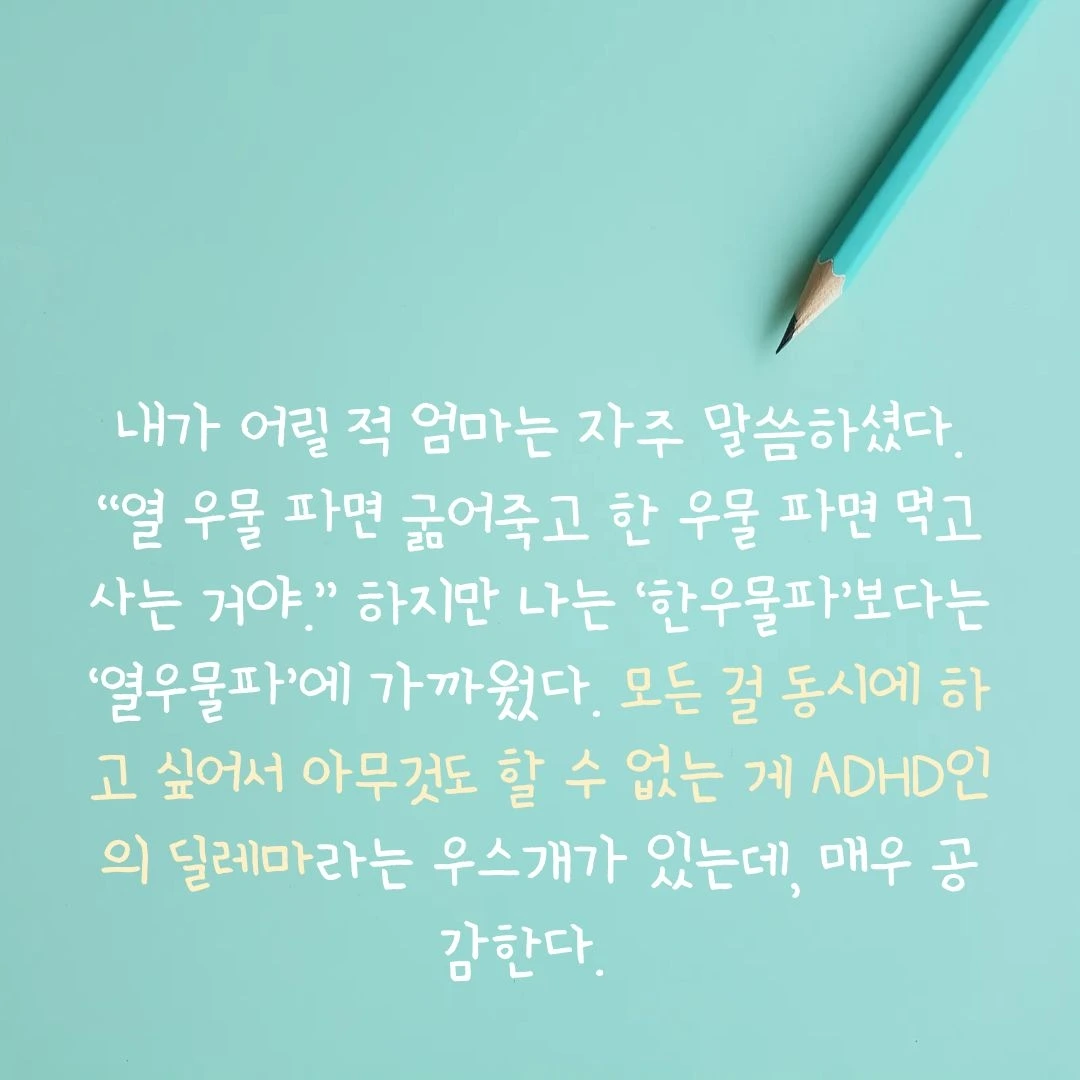 내가 어릴 적 엄마는 자주 말씀하셨다.
“열 우물 파면 굶어죽고 한 우물 파면 먹고
사는 거야.” 하지만 나는 ‘한우물파’보다는
‘열우물파’에 가까웠다. 모든 걸 동시에 하
고 싶어서 아무것도 할 수 없는 게 ADHD인
의 딜레마라는 우스개가 있는데, 매우 공
감한다.